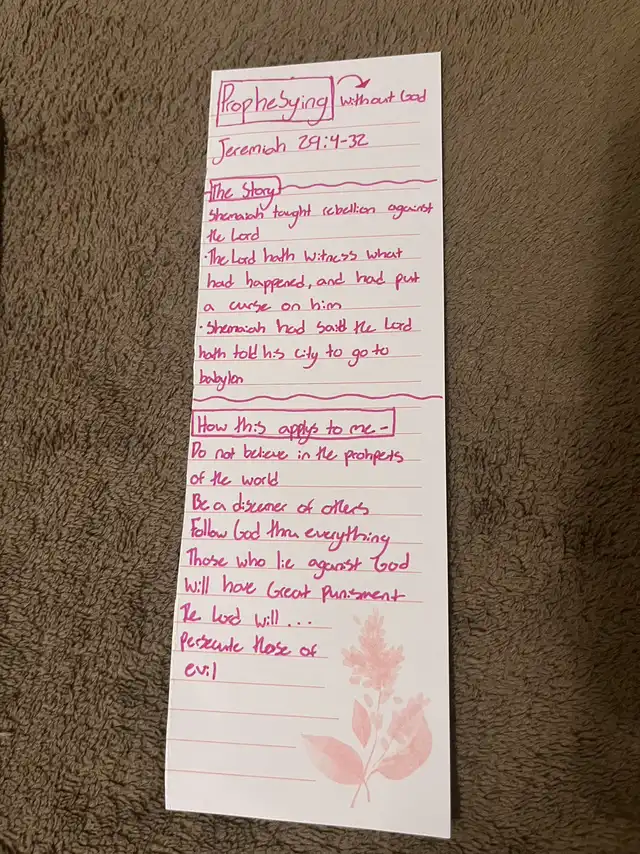 Prophesying without God
Jeremiah 29:4-32
The Story
Shemaiah taught rebellion against
the Lord
·The Lord hath witness what
had happened, and had put
a curse on him
·Shemaiah had said the Lord
hath told his city to go to
babylon
How this applys to me-
Do not believe in the prohpets
of the world
Be a discerner of others
Follow God thru everything
Those who lie against God
will have Great punisment
The Lord will...
Persecute those of
evil